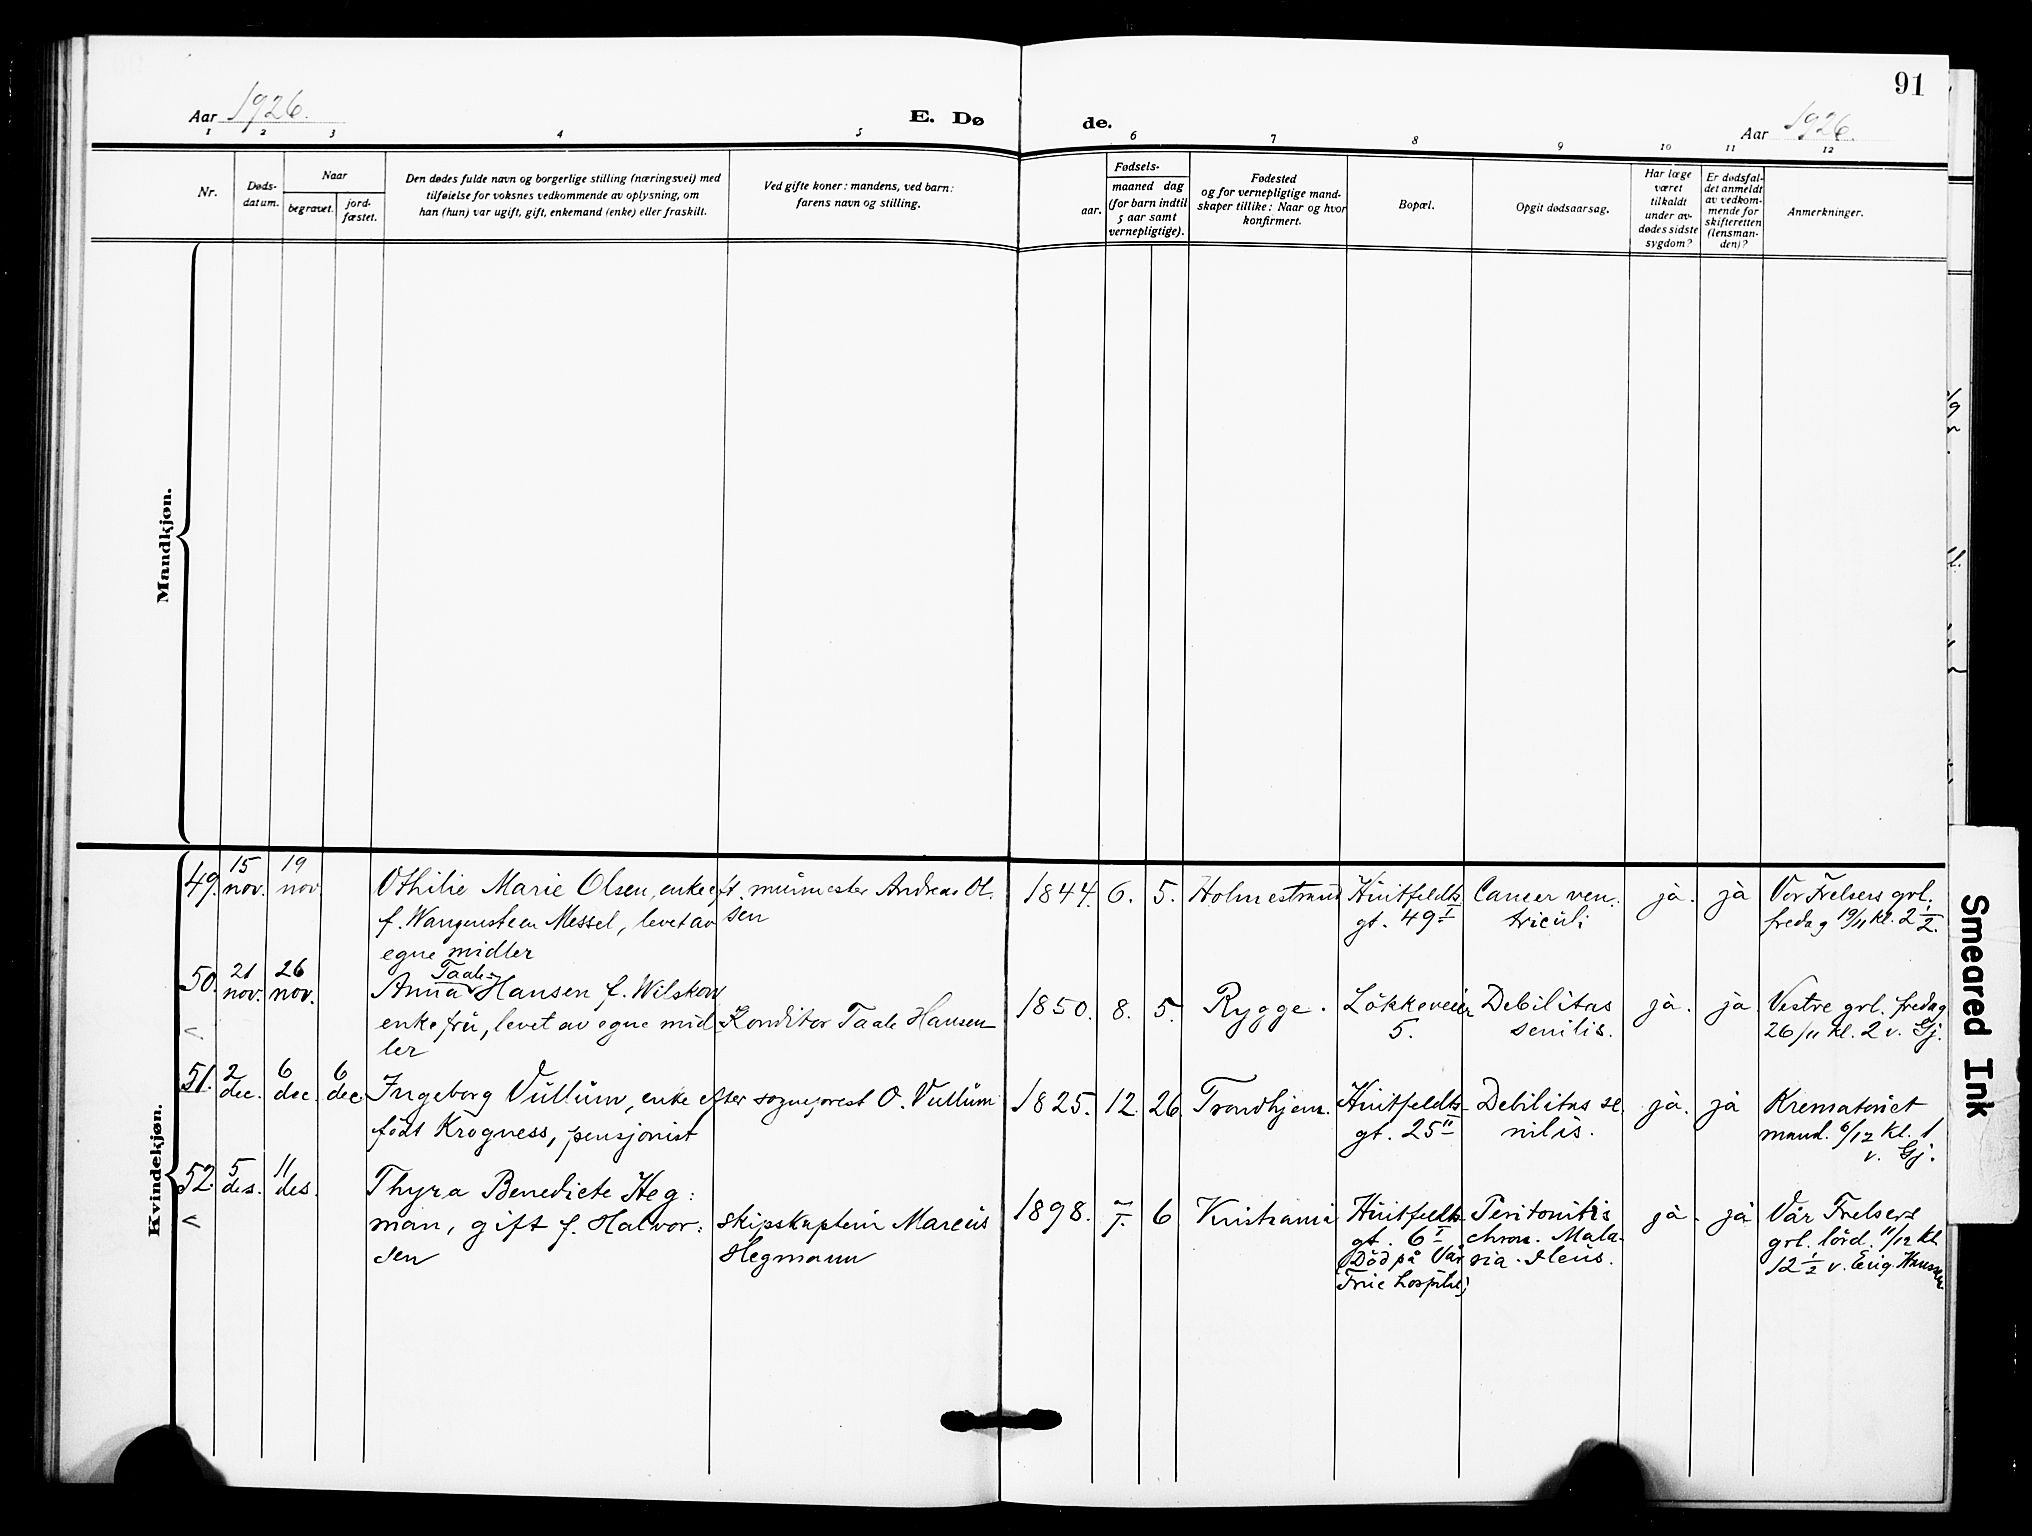 91
Aar 1926.
E. Dø de.
Aar 1926.
1 2 3 4 5 6 7 8 9 10 11 12
Nr.
Døds-
datum.
Naar
begravet.
jord-
fæstet.
Den dødes fulde navn og borgerlige stilling (næringsvei) med
tilføielse for voksnes vedkommende av oplysning, om
han (hun) var ugift, gift, enkemand (enke) eller fraskilt.
Ved gifte koner: mandens, ved barn:
farens navn og stilling.
Fødsels-
aar.
maaned dag
(for barn indtil
5 aar samt
vernepligtige).
Fødested
og for vernepligtige mand-
skaper tillike: Naar og hvor
konfirmert.
Bopæl.
Opgit dødsaarsag.
Har læge
været
tilkaldt
under av-
dødes sidste
sygdom?
Er dødsfal-
det anmeldt
av vedkom-
mende for
skifteretten
(lensman-
den)?
Anmerkninger.
Mandkjøn.
Kvindekjøn.
49.
15
nov.
19
nov
Othilie Marie Olsen, enke
f. Wangensteen Messel, levet av
egne midler
eft. murmester Andreas Ol.
sen
1844. 6. 5.
Holmestrand
Huitfeldts
gt. 49 I
Cancer ven.
triculi
ja.
ja
Vor Frelsers grl.
fredag 19/11 kl. 2 1/2.
50.
21
nov.
26
nov.
Taale
Anna Hansen f. Wilskow
enkefru, levet av egne mid
ler
Konditor Taale Hansen
1850. 8. 5.
Rygge.
Løkkeveien
5.
Debilitas
senilis.
ja.
ja
Vestre grl. fredag
26/11 kl. 2 v. Gj.
51.
2
dec.
6
dec
6
dec
Ingeborg Vullum, enke efter sogneprest O. Vullum
født Krogness, pensjonist
1825. 12. 26
Trondhjem.
Huitfeldts
gt. 25 II
Debilitas se.
nilis.
ja.
ja
Krematoriet
mand. 6/12 kl. 1
v. Gj.
52.
5
des.
11
des.
Thyra Benedicte Heg:
man, gift f. Halvor:
sen
skipskaptein Marcus
Hegmann
1898. 7. 6
Kristiania
Huitfeldts
gt. 6 I
(Död på Vår
Frue hospital)
Peritonitis
chron. Mala-
ria. Ileus.
ja.
ja
Vår Frelsers
grl. lörd. 11/12 kl
12 1/2 v. Eug. Hansen.
Smeared Ink